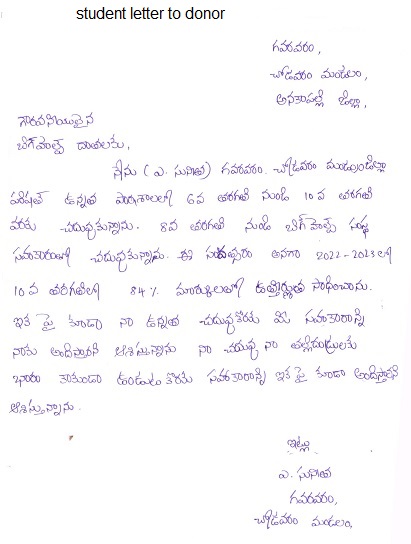 student letter to donor
గవరవరం,
చోడవరం మండలం,
అనకాపల్లి జిల్లా,
గౌరవనీయులైన
బిగ్‌హెల్ప్ దాతలకు,
నేను (ఎ. సునీత) గవరవరం. చోడవరం మండలం జిల్లా
పరిషత్ ఉన్నత పాఠశాలలో 6వ తరగతి నుండి 10వ తరగతి
వరకు చదువుకున్నాను. 8వ తరగతి నుండి బిగ్‌హెల్ప్ సంస్థ
సహకారంతో చదువుకున్నాను. ఈ సంవత్సరం అనగా 2022-2023లో
10వ తరగతిలో 84% మార్కులతో ఉత్తీర్ణత సాధించాను.
ఇక పై కూడా నా ఉన్నత చదువుకొరకు మీ సహకారాన్ని
నాకు అందిస్తారని ఆశిస్తున్నాను నా చదువు నా తల్లిదండ్రులకు
భారం కాకుండా ఉండుట కొరకు సహకారాన్ని ఇక పై కూడా అందిస్తారని
ఆశిస్తున్నాను.
ఇట్లు
ఎ. సునీత
గవరవరం,
చోడవరం మండలం.